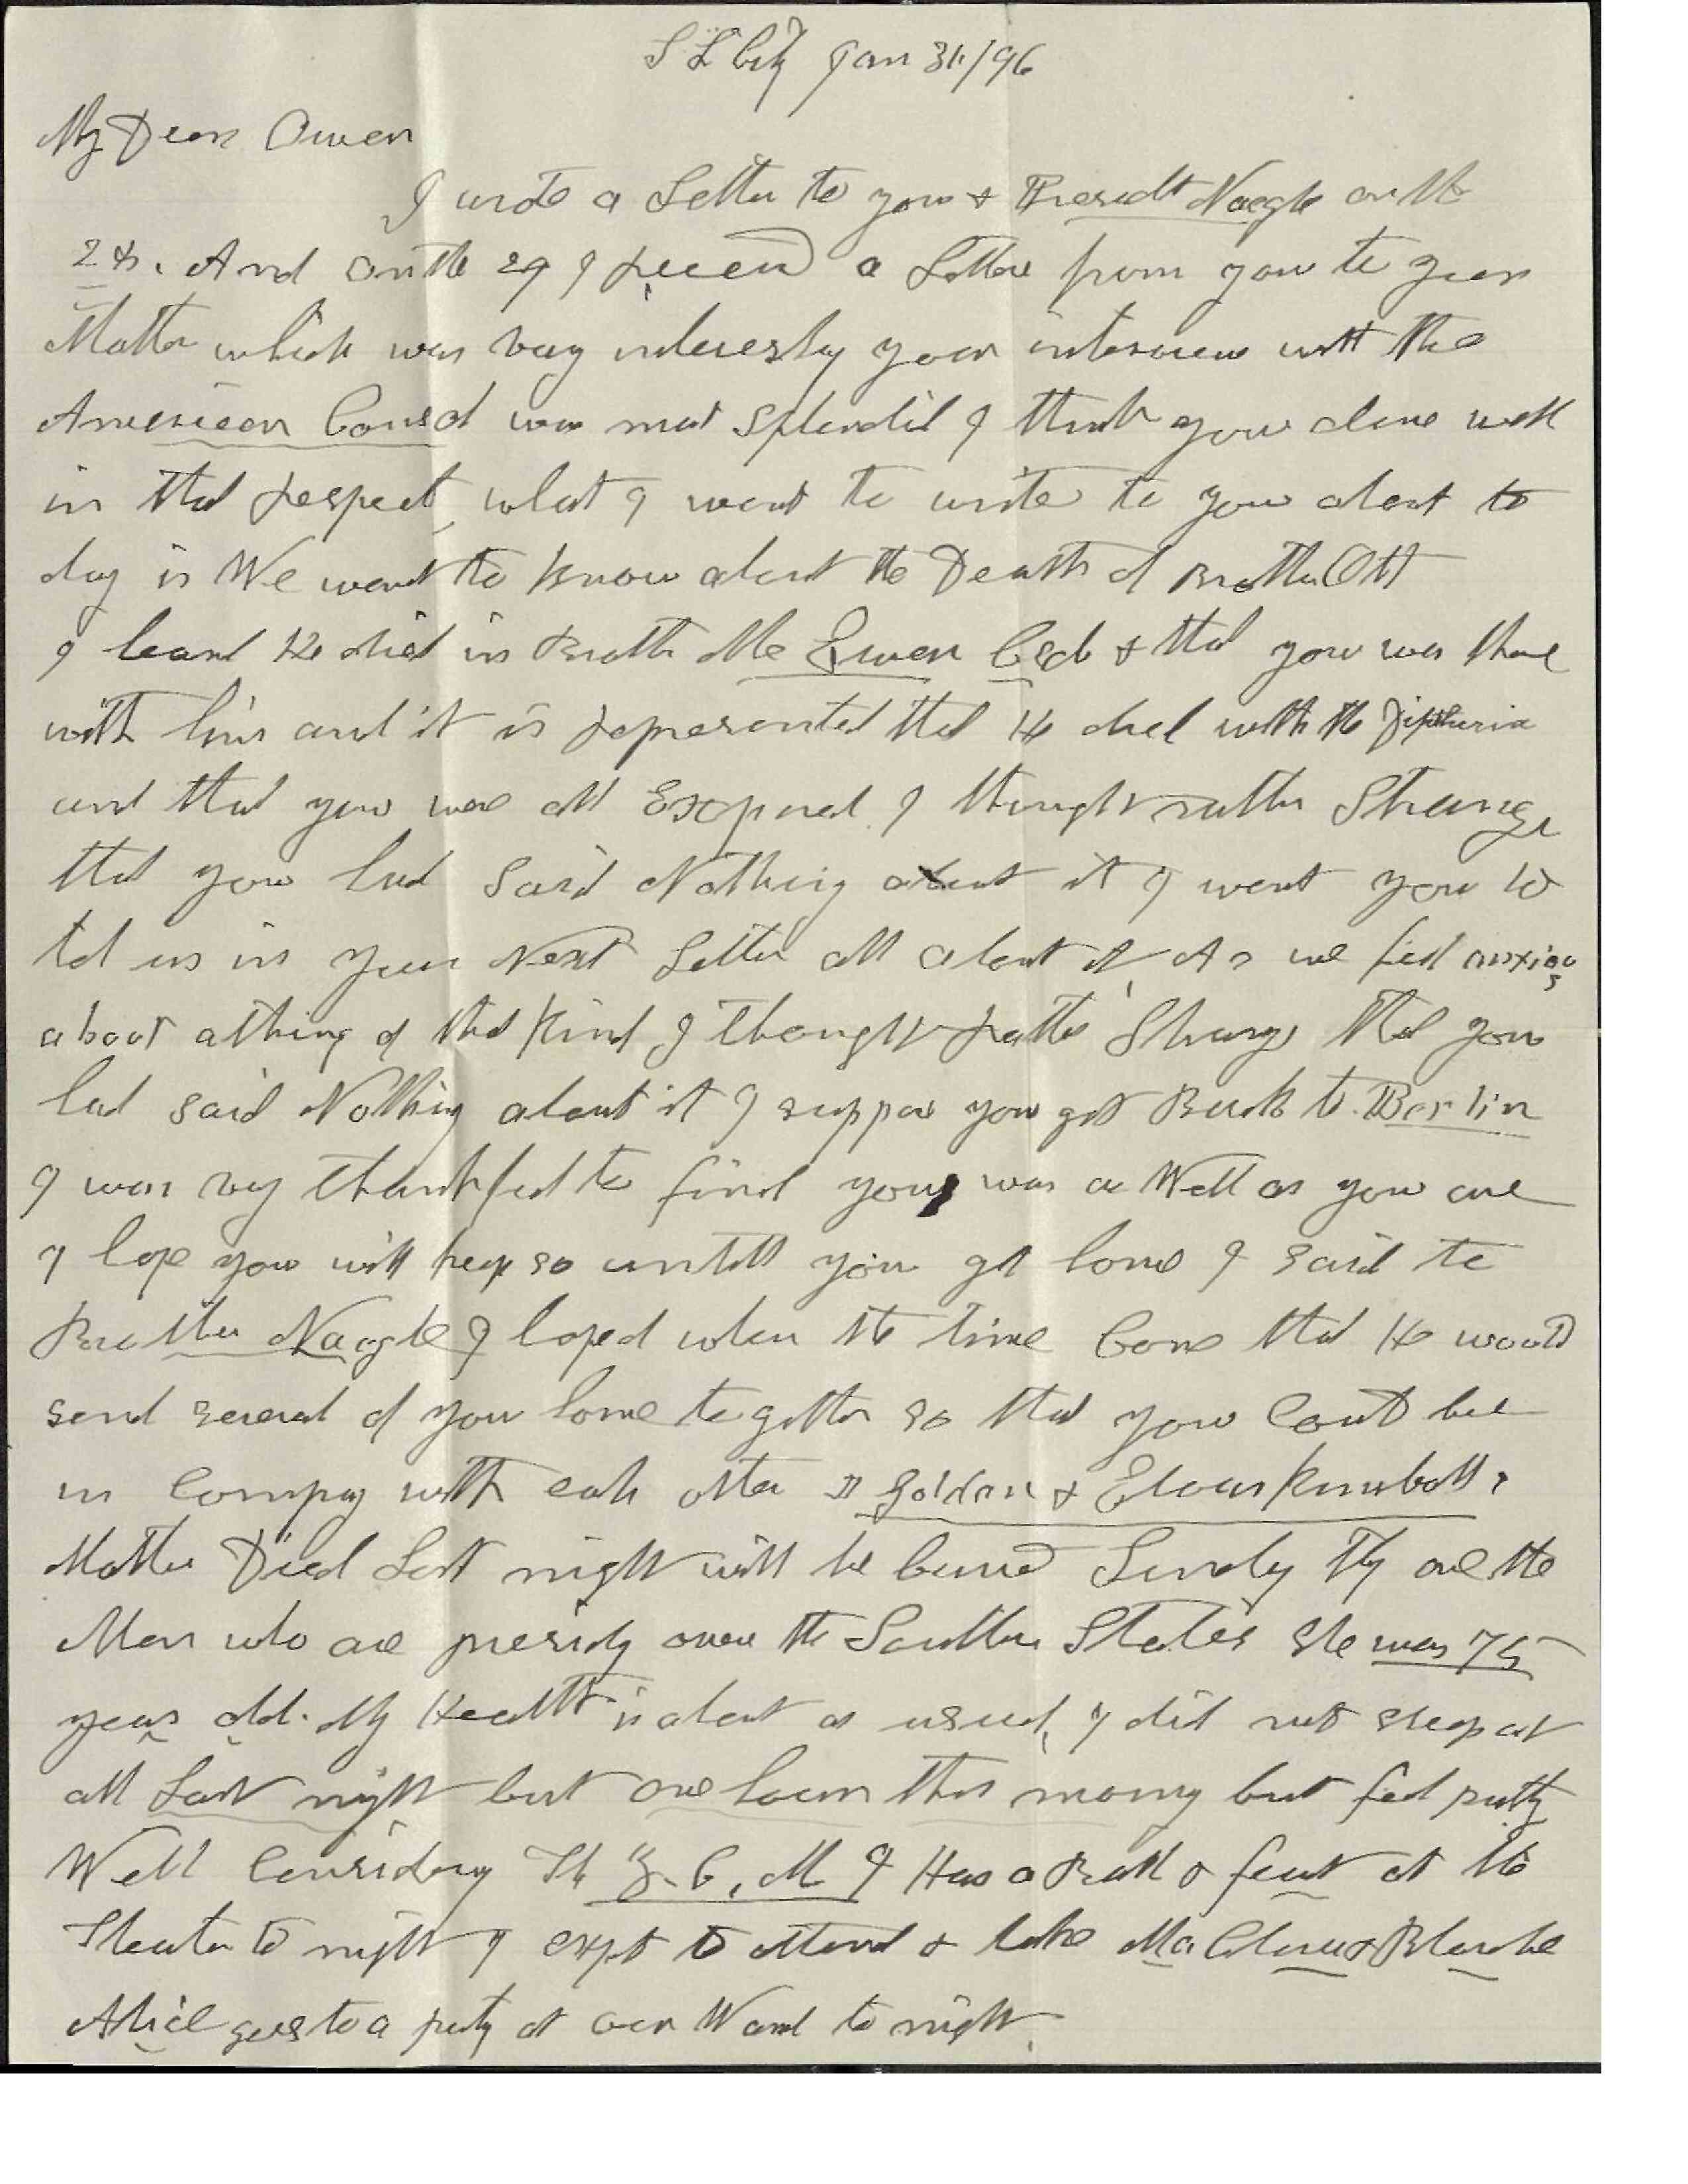 S L City Jan 31/96
My Dear Owen
I wrote a Letter to you & Presedt Naegle on the
28. And on the 29 I receivd a Letter from you to your
Mother which was very interesting your interview with the
American Consel was most splendid I think you done well
in that respect, what I want to write to you about to
day is We want to know about the Death of Brother Ott
I learnd He died in Brother Mc Ewen Bed & that you was there
with him and it is represented that He died with the Diptheria
and that you was all Exposed. I thought rather Strange
that you had Said Nothing about it I want you to
tel us in your Next Letter all about it As we feel anxious
about a thing of that Kind I thought rather Strange that you
had said Nothing about it I suppose you got Back to Berlin
I was very thankful to find you was as Well as you are
I hope you will keep so untill you get home I said to
Brother Naegle I hoped when the time Come that He would
send several of you home together so that you Could bee
in Compny with each other Golden & Elias Kimballs
Mother Died Last night will be buried Sunday They are the
Men who are presidg over the Southern States She was 75
years old. My Health is about as usual, I did not sleep at
all Last night but one hour this morng but feel pretty
Well Considerng The Z. C. M I Has a Ball & feast at the
Theater to night I expt to attend & take Ma Clara & Blanche
Alice goes to a party at our Ward to night.